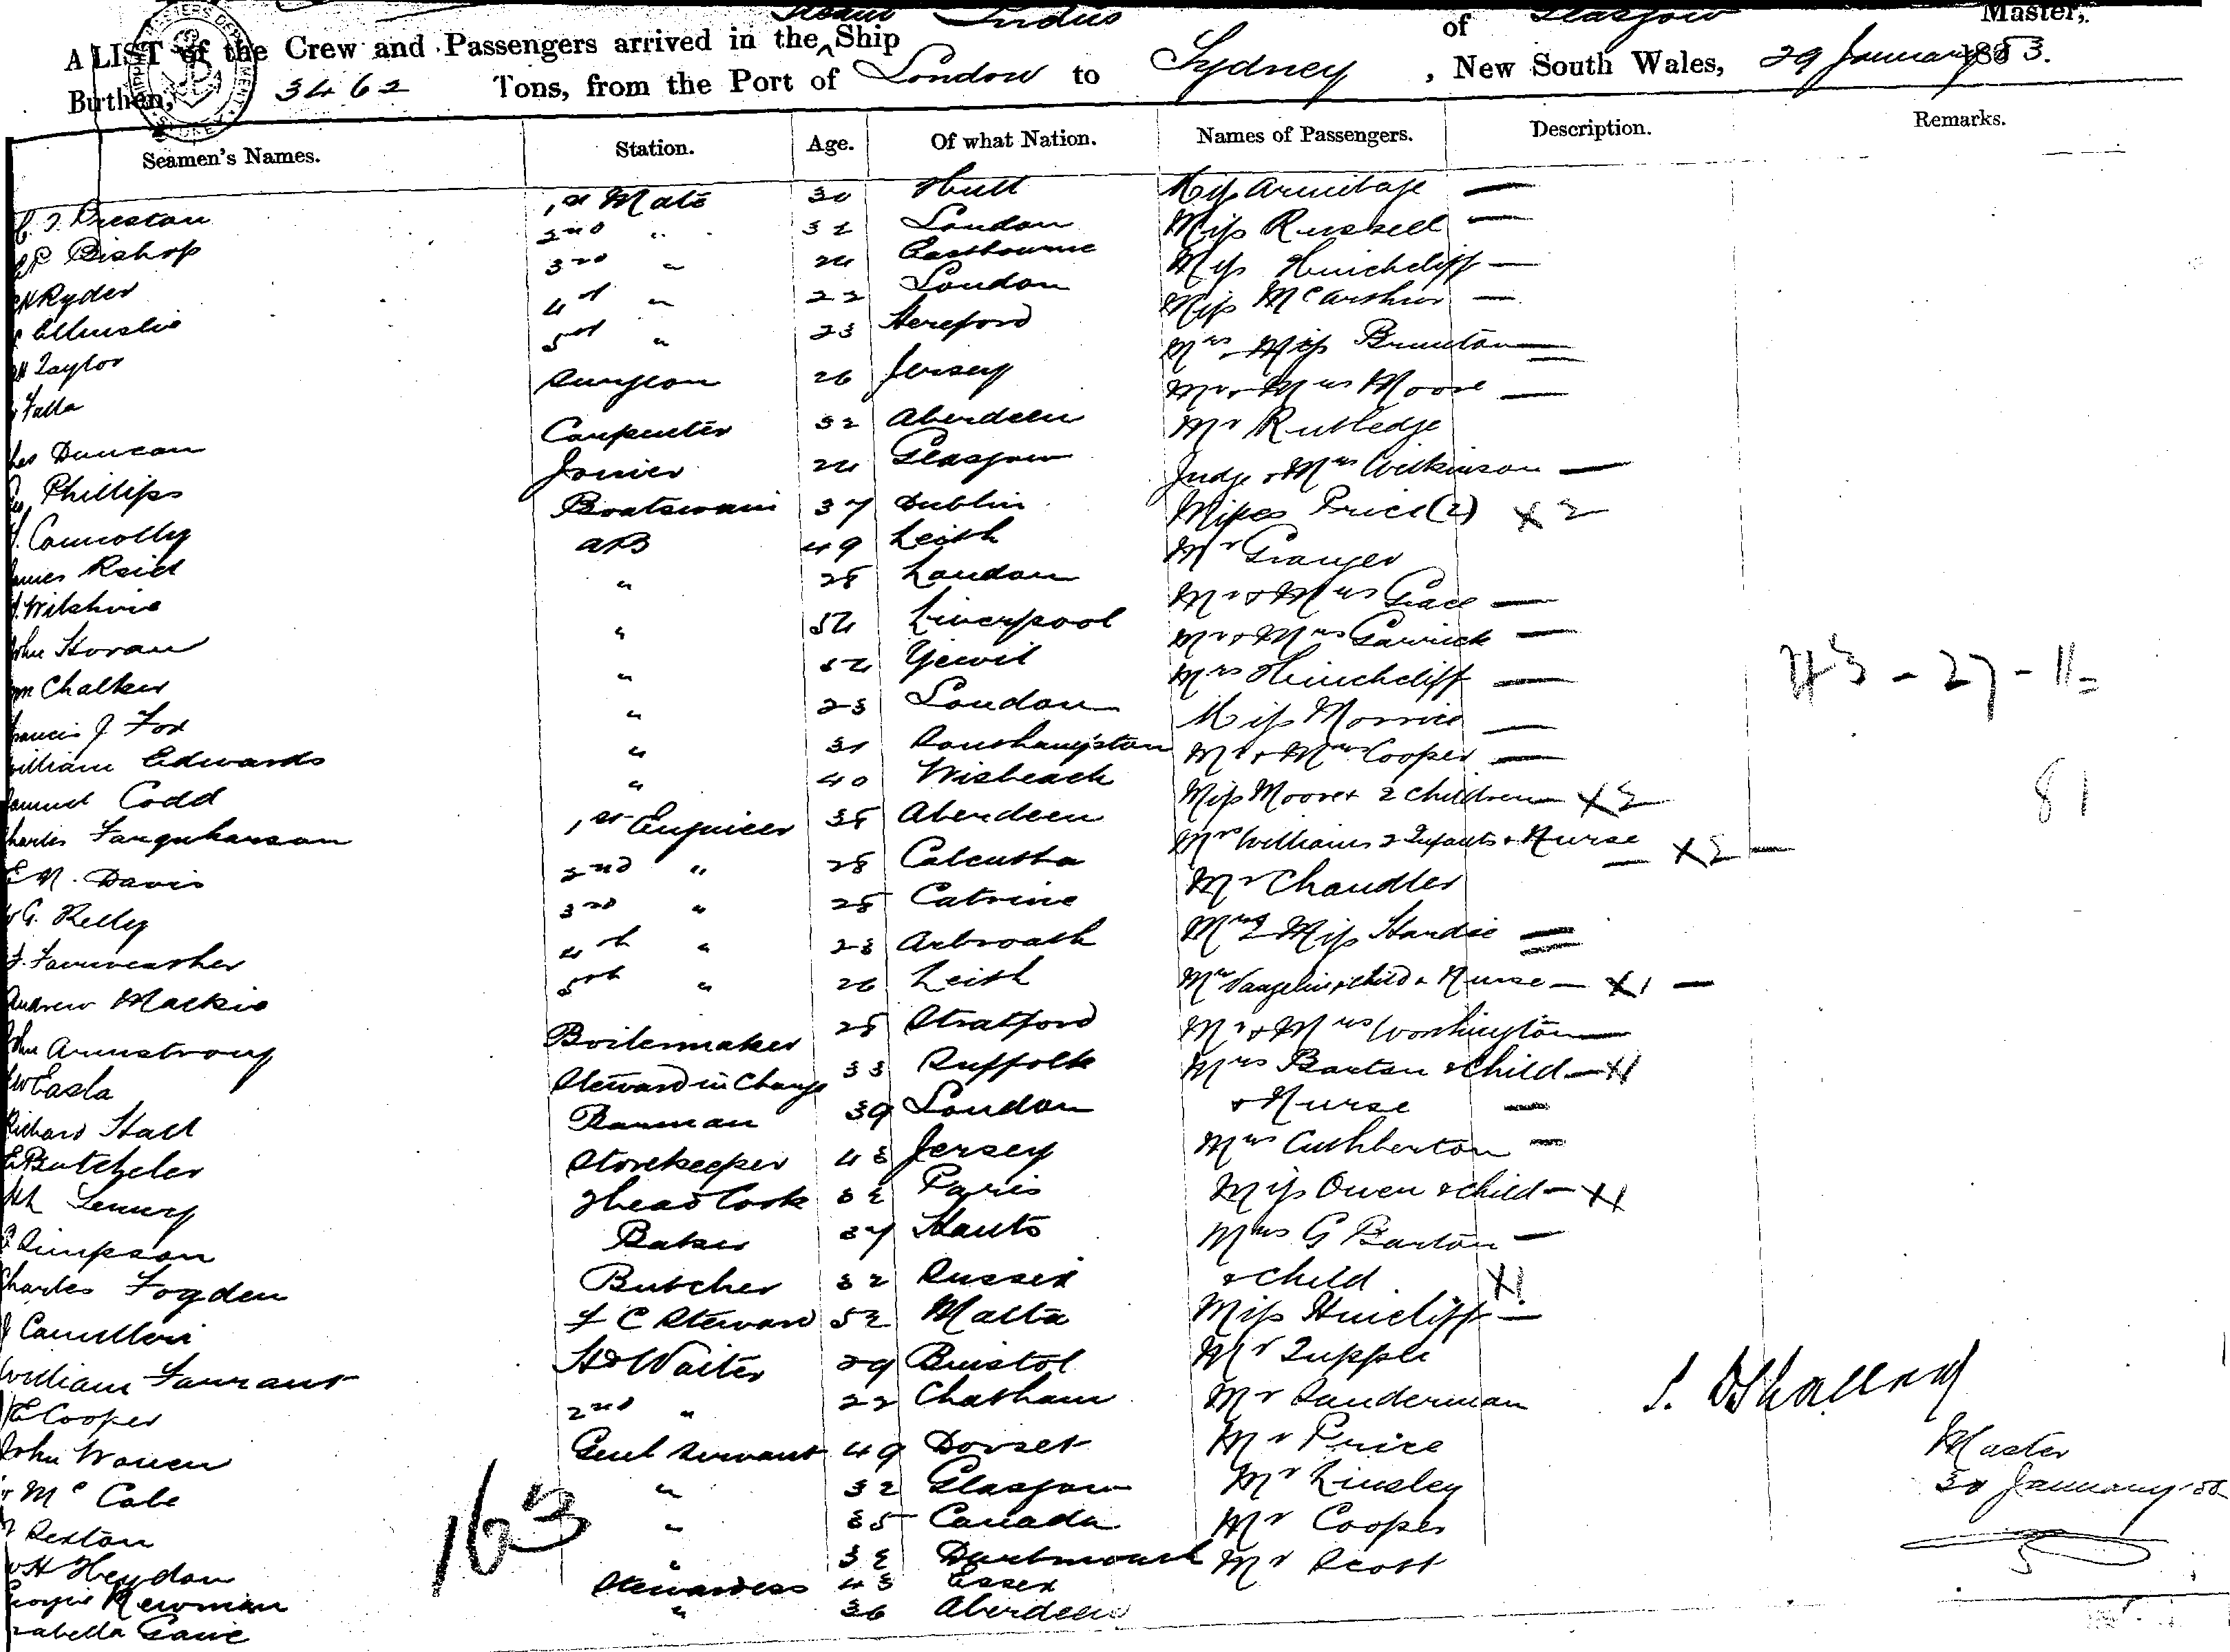 Steam Indus of Glasgow Master,
A LIST of the Crew and Passengers arrived in the ^ Ship
Burthen, 3462 Tons, from the Port of London to Sydney, New South Wales, 29 January 1883.
Seamen's Names. Station. Age. Of what Nation. Names of Passengers. Description. Remarks.
Preston 1st Mate 30 Hull Miss Armitage —
Bishop 2nd " 32 London Miss Russell —
Ryder 3rd " 24 Eastbourne Miss Hinchcliff —
4th " 22 London Miss McArthur —
Taylor 5th " 23 Hereford Mrs Miss Brunton —
Falla Surgeon 26 Jersey Mr + Mrs Moore —
Duncan Carpenter 32 Aberdeen Mr Rutledge
Phillips Joiner 24 Glasgow Judge + Mrs Wilkinson —
Connolly Boatswain 37 Dublin Misses Price (2) X 2
James Reid AB 49 Leith Mr Granger
Wilshire " 28 London Mr + Mrs Grace —
John Horan " 54 Liverpool Mr + Mrs Garrick —
Wm Chalker " 54 Yeovil Mrs Hinchcliff —
Francis J Fox " 23 London Miss Morrice —
William Edwards " 31 Mr + Mrs Cooper —
Samuel Codd " 40 Wisbeach Miss Moore + 2 children X 2
Charles Farquharson 1st Engineer 38 Aberdeen Mrs Williams 2 Infants + Nurse — X 2 —
E N. Davis 2nd " 28 Calcutta Mr Chandler
G. Kelly 3rd " 28 Catrine Mrs & Miss Hardie —
J. Fairweather 4th " 23 Arbroath
Andrew Mackie 5th " 26 Leith child + Nurse — X 1 —
John Armstrong Boilermaker 28 Stratford Mr + Mrs Worthington —
Easla Steward in Charge 33 Suffolk Mrs Barton + child — X 1
Richard Hall Barman 39 London + Nurse —
E Batchelor Storekeeper 43 Jersey Mrs Cuthberton —
Lenny Head Cook 32 Paris Miss Owen + child — X 1
Simpson Baker 37 Hants Mrs G Barton —
Charles Fogden Butcher 32 Sussex + child X 1
Camilleri F C Steward 52 Malta Miss Hincliff —
William Farrant Hd Waiter 29 Bristol Mr Tupple
E Cooper 2nd " 22 Chatham Mr Sanderman
John Warren Genl Servant 49 Dorset Mr Price
McCabe " 32 Glasgow Mr Linsley
Sexton " 35 Canada Mr Cooper
H Heydon " 32 Dartmouth Mr Scott
Newman Stewardess 43 Essex
Isabella Gane " 36 Aberdeen
43 - 27 - 11 =
81
163
Master
30 January 83
5